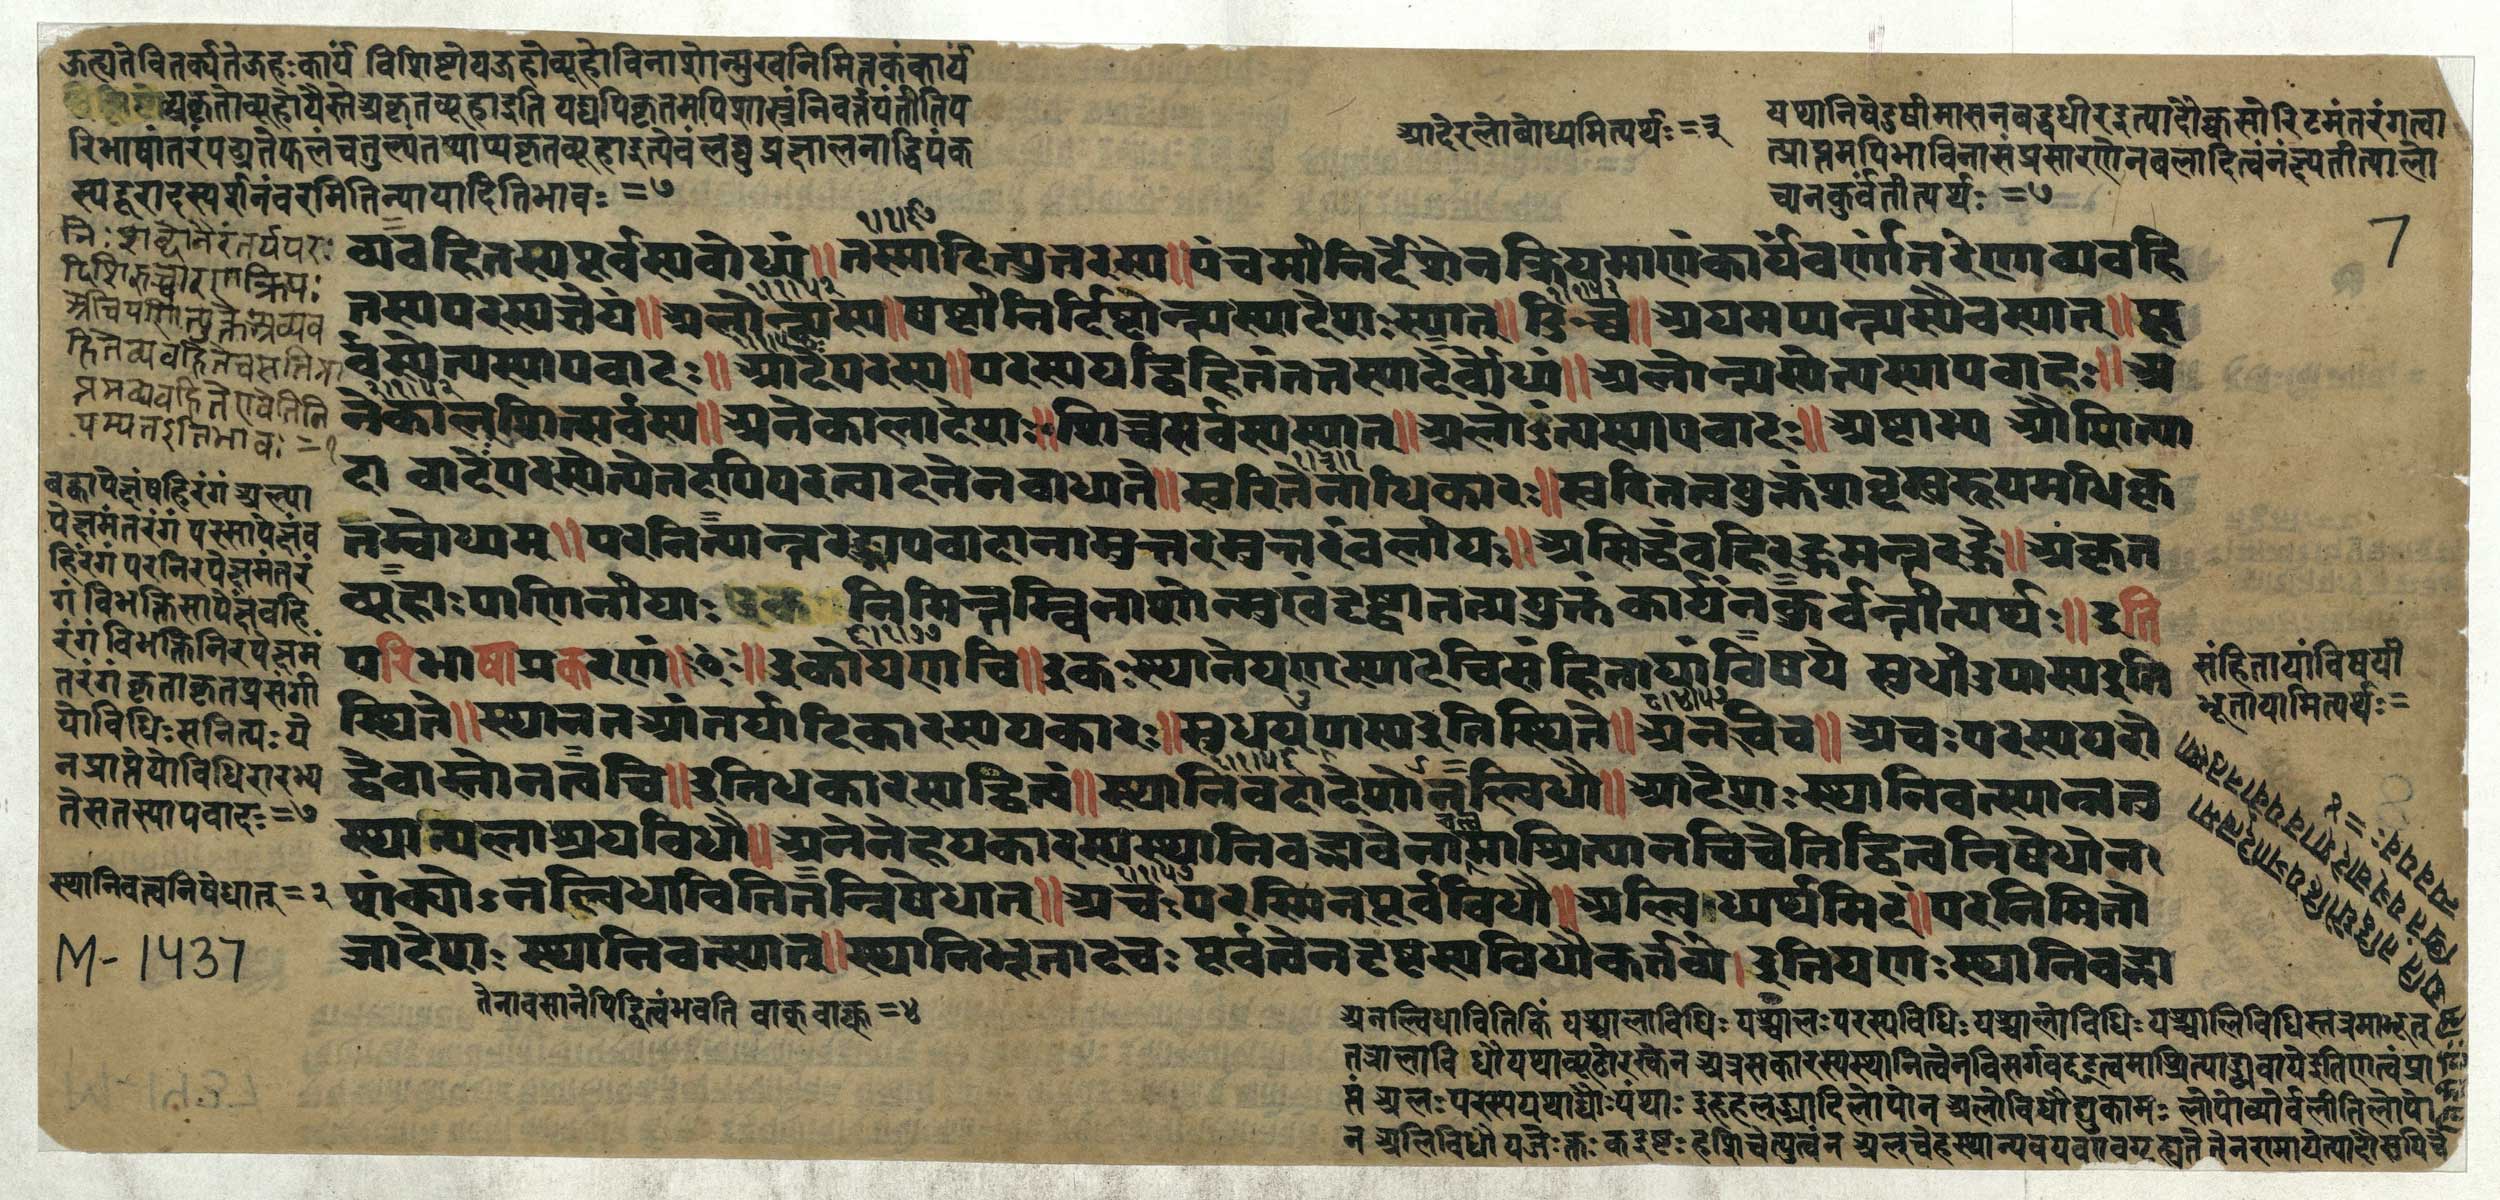 ऊह्यते वितर्क्यते ऊहः कार्यं विशिष्टो य ऊहो व्यूहो विनाशोन्मुखनिमित्तकं कार्यं
अकृतो व्यूहो यैस्ते अकृतव्यूहा इति यद्यपि कृतमपि शास्त्रं निवर्त्तयंतीति प
रिभाषांतरं पठ्यते फलं च तुल्यं तथाप्यकृतव्यूहा इत्येवं लघु प्रक्षालनाद्धि पंक
स्य दूरादस्पर्शनं वरमिति न्यायादिति भावः =७
आदेरलो बोध्यमित्यर्थः =३
यथा निषेदुषीमासनबद्धधीर इत्यादौ क्वसोरिटमंतरंगत्वा
त्प्राप्तमपि भाविना संप्रसारणेन वलादित्वं नंक्ष्यतीत्यालो
च्य न कुर्वंतीत्यर्थः =७
7
व्यवहितस्य पूर्वस्य बोध्यं॥ तस्मादित्युत्तरस्य॥ पंचमीनिर्देशेन क्रियमाणं कार्यं वर्णांतरेणाव्यवहि
तस्य परस्य ज्ञेयं॥ अलोन्त्यस्य॥ षष्ठीनिर्दिष्टोन्त्यस्यादेशः स्यात्॥ ङिच्च॥ अयमप्यन्त्यस्यैव स्यात्॥ स
र्वस्येत्यस्यापवादः॥ आदेः परस्य॥ परस्य यद्विहितं तत्तस्यादेर्बोध्यं॥ अलोन्त्यस्येत्यस्यापवादः॥ अ
नेकाल्शित्सर्वस्य॥ अनेकालादेशः शिच्च सर्वस्य स्यात्॥ अलोऽन्त्यस्यापवादः॥ अष्टाभ्य औशित्या
दा वादेः परस्येत्येतदपि परत्वादनेन बाध्यते॥ स्वरितेनाधिकारः॥ स्वरितत्वयुक्तं शब्दस्वरूपमधिकृ
तम्बोध्यम्॥ परनित्यान्तरङ्गापवादानामुत्तरमुत्तरं बलीयः॥ असिद्धं बहिरङ्गमन्तरङ्गे॥ अकृत
व्यूहाः पाणिनीयाः निमित्तम्विनाशोन्मुखं दृष्ट्वा तत्प्रयुक्तं कार्यं न कुर्वन्तीत्यर्थः॥ इति
परिभाषाप्रकरणं॥ इको यणचि॥ इकः स्थाने यण् स्यादचि संहितायां विषये सुधी उपास्य इति
स्थिते॥ स्थानत आंतर्यादिकारस्य यकारः॥ सुध्य् उपास्य इति स्थिते॥ अनचि च॥ अचः परस्य यरो
द्वे वा स्तो न त्वचि॥ इति धकारस्य द्वित्वं॥ स्थानिवदादेशोनल्विधौ॥ आदेशः स्थानिवत्स्यान्न तु
स्थान्यलाश्रयविधौ॥ अनेनेह यकारस्य स्थानिवद्भावेनाच्त्वमाश्रित्यानचि चेति द्वित्वनिषेधो न
शंक्योऽनल्विधाविति तन्निषेधात्॥ अचः परस्मिन् पूर्वविधौ॥ अल्विध्यर्थमिदं॥ परनिमित्तो
जादेशः स्थानिवत्स्यात्॥ स्थानिभूतादचः पूर्वत्वेन दृष्टस्य विधौ कर्तव्ये। इति यणः स्थानिवद्भा
निः शब्दो नैरंतर्यपरः
दिशिरुच्चारणक्रियः
हिते व्यवहिते च सति
पम्यत इति भावः =१
बह्वपेक्षं बहिरंगं अल्पा
पेक्षमंतरंगं परसापेक्षं ब
हिरंगं परनिरपेक्षमंतरं
गं विभक्तिसापेक्षं बहि
रंगं विभक्तिनिरपेक्षमं
तरंगं कृताकृतप्रसंगी
यो विधिः स नित्यः ये
न प्राप्ते यो विधिरारभ्य
ते स तस्यापवादः =७
स्थानिवत्वनिषेधात् =२
M-1437
संहितायां विषयी
भूतायामित्यर्थः =
तेनावसानेपि द्वित्वं भवति वाक् वाक्क् =४
अनल्विधाविति किं यश्चाला विधिः यश्चालः परस्य विधिः यश्चालो विधिः यश्चालि विधिस्तत्र माभूत्
तत्राला विधौ यथा व्यूढोरस्केन अत्र सकारस्य स्थानित्वेन विसर्गवदट्त्वमाश्रित्याड्व्यवाय इति णत्वं प्रा
प्तं अलः परस्य यथा द्यौः पंथाः इह हल्ङ्यादिलोपो न अलो विधौ द्युकामः लोपो व्योर्वलीति लोपो
न अलि विधौ यजेः क्तः क इष्टः हशि चेत्युत्वं न